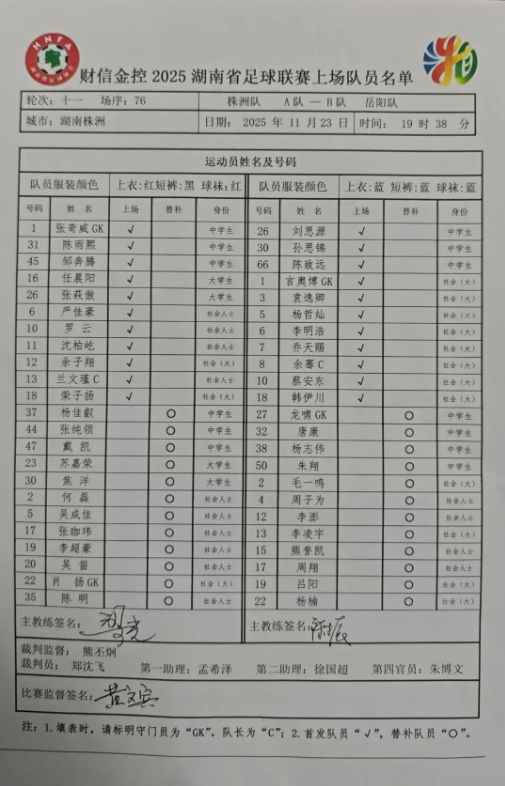 HNFA
财信金控 2025 湖南省足球联赛上场队员名单
轮次：十一 场序：76 株洲队 A队 — B队 岳阳队
城市：湖南株洲 日期： 2025 年 11 月 23 日 时间： 19 时 38 分
运动员姓名及号码
队员服装颜色 上衣:红短裤:黑 球袜:红 队员服装颜色 上衣:蓝 短裤:蓝 球袜:蓝
号码 姓 名 上场 替补 身份 号码 姓 名 上场 替补 身份
1 张奇威 GK √ 中学生 26 刘思源 √ 中学生
31 陈雨熙 √ 中学生 30 孙思锦 √ 中学生
45 邹奔腾 √ 中学生 66 陈致远 √ 中学生
16 任晨阳 √ 大学生 1 言奥博 GK √ 社会（大）
26 张萩傲 √ 大学生 3 袁逸卿 √ 社会（大）
6 严佳豪 √ 社会人士 5 杨哲灿 √ 社会（大）
10 罗 云 √ 社会人士 6 李明浩 √ 社会（大）
11 沈柏屹 √ 社会人士 7 乔天赐 √ 社会（大）
12 余子翔 √ 社会（大） 8 余骞 C √ 社会（大）
13 兰文瑾 C √ 社会人士 10 蔡安东 √ 社会（大）
18 荣子扬 √ 社会（大） 18 韩伊川 √ 社会（大）
37 杨佳叡 O 中学生 27 龙啸GK O 中学生
44 张纯领 O 中学生 32 唐康 O 中学生
47 戴 凯 O 中学生 38 杨志伟 O 中学生
23 苏嘉荣 O 大学生 50 朱翔 O 中学生
30 焦 洋 O 大学生 2 毛一鸣 O 社会（大）
2 何磊 O 社会人士 4 周子为 O 社会（大）
5 吴成佳 O 社会人士 12 李澎 O 社会（大）
17 张珈玮 O 社会人士 13 李凌宇 O 社会（大）
19 李超豪 O 社会人士 15 熊誉凯 O 社会（大）
20 吴 笛 O 社会人士 17 周翔 O 社会（大）
22 肖 扬 GK O 社会（大） 19 吕阳 O 社会（大）
35 陈 明 O 社会人士 22 杨楠 O 社会（大）
主教练签名： 主教练签名：
裁判监督： 熊丕炯
裁判员： 郑沈飞 第一助理：孟希泽 第二助理：徐国超 第四官员：朱博文
比赛监督签名：黄文宾
注：1.填表时，请标明守门员为“GK”，队长为“C”；2.首发队员“√”，替补队员“O”。